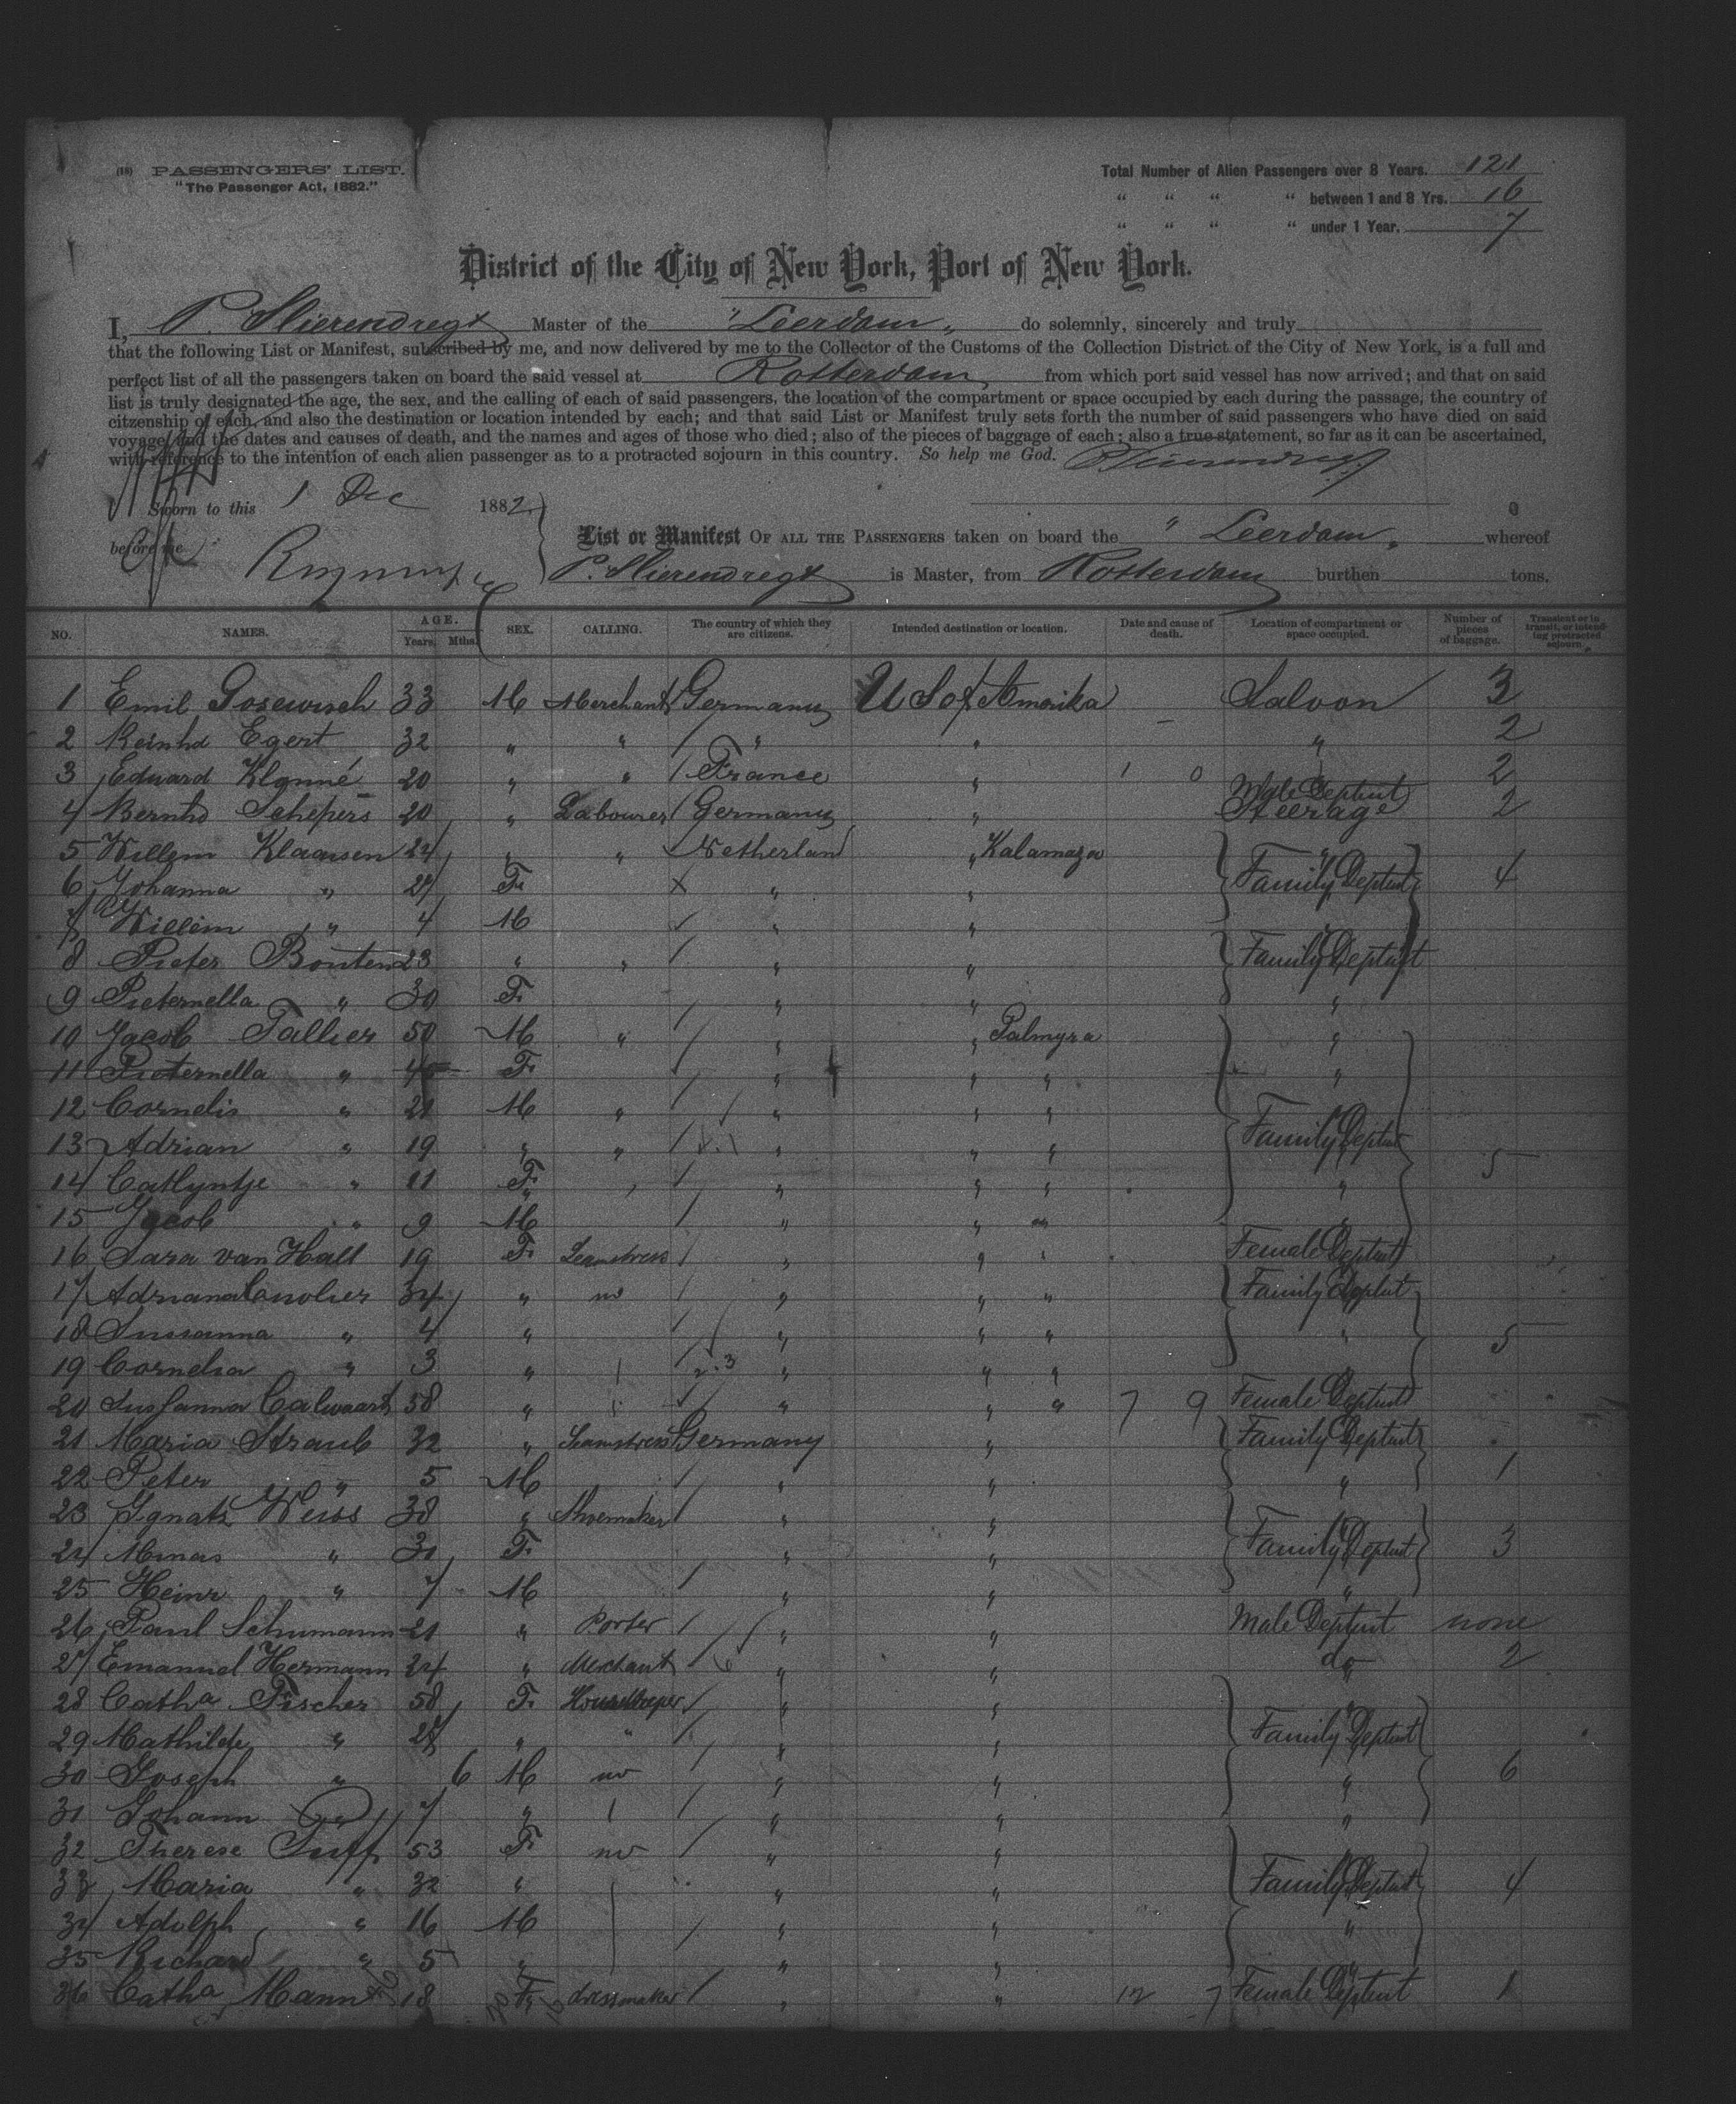 (18) PASSENGERS' LIST.
"The Passenger Act, 1882."
Total Number of Alien Passengers over 8 Years. 121
" " " " between 1 and 8 Yrs. 16
" " " " under 1 Year. 7
District of the City of New York, Port of New York.
I, P. Stierendregt Master of the "Leerdam" do solemnly, sincerely and truly
that the following List or Manifest, subscribed by me, and now delivered by me to the Collector of the Customs of the Collection District of the City of New York, is a full and
perfect list of all the passengers taken on board the said vessel at Rotterdam from which port said vessel has now arrived; and that on said
list is truly designated the age, the sex, and the calling of each of said passengers, the location of the compartment or space occupied by each during the passage, the country of
citzenship of each, and also the destination or location intended by each; and that said List or Manifest truly sets forth the number of said passengers who have died on said
voyage, and the dates and causes of death, and the names and ages of those who died; also of the pieces of baggage of each; also a true statement, so far as it can be ascertained,
with reference to the intention of each alien passenger as to a protracted sojourn in this country. So help me God. P. Stierendregt
Sworn to this 1 Dec 1882
before me
List or Manifest OF ALL THE PASSENGERS taken on board the "Leerdam" whereof
P. Stierendregt is Master, from Rotterdam burthen tons.
NO. NAMES. AGE. Years. Mths. SEX. CALLING. The country of which they are citizens. Intended destination or location. Date and cause of death. Location of compartment or space occupied. Number of pieces of baggage. Transient or in transit, or intending protracted sojourn.
1 Emil Gosewisch 33 M Merchant Germany U S of Amerika Saloon 3
2 Reinhd Egert 32 " " " " " 2
3 Eduard Klonné 20 " " France " 1 0 " 2
4 Bernhd Schepers 20 " Labourer Germany " Male Deptmt Steerage 2
5 Willem Klaassen 24 " " Netherland " Kalamazoo "
6 Johanna " 27 F " " Family Deptmt 4
7 Willem " 4 M " "
8 Pieter Bouten 23 " " " " Family Deptmt
9 Pieternella " 30 F " " "
10 Jacob Tallier 50 M " " " Palmyra "
11 Pieternella " 45 F " " " "
12 Cornelis " 21 M " " " "
13 Adrian " 19 " " " " " Family Deptmt
14 Catlyntje " 11 F " " " " " 5
15 Jacob " 9 M " " "
16 Sara van Hall 19 F Seamstress " " " Female Deptmt
17 Adriana Canolier 34 " no " " " Family Deptmt
18 Susanna " 4 " " " " " 5
19 Cornelia " 3 " " " "
20 Susanna Calwaart 58 " " " " 7 9 Female Deptmt
21 Maria Straub 32 " Seamstress Germany " Family Deptmt
22 Peter " 5 M " " " 1
23 Ignatz Weiss 38 " Shoemaker " "
24 Minas " 30 F " " Family Deptmt 3
25 Heinr " 7 M " " "
26 Paul Schumann 21 " Porter " " Male Deptmt none
27 Emanuel Hermann 24 " Merchant " " do 2
28 Catha Fischer 58 F Housekeeper " "
29 Mathilde " 28 " " " " Family Deptmt
30 Joseph " 6 M no " " " 6
31 Johann " 7 " " " "
32 Therese Tuff 53 F no " "
33 Maria " 32 " " " Family Deptmt 4
34 Adolph " 16 M " " "
35 Richard " 5 " " "
36 Catha Mann 18 F dressmaker " " 12 7 Female Deptmt 1